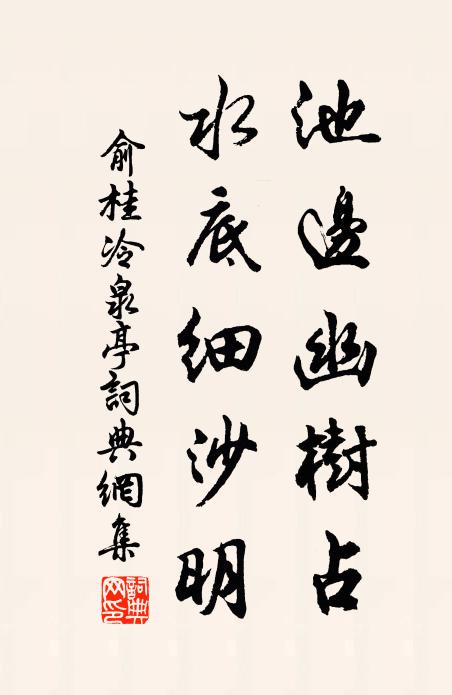 池邊幽樹占
水底細沙明
俞桂冷泉亭詞典網集
詞典網印